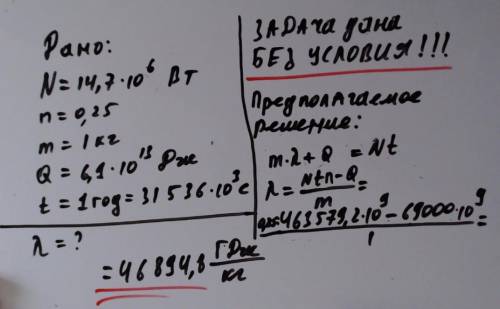 Дано:
N = 14,7·10⁶ Вт
n = 0,25
m = 1 кг
Q = 6,9·10¹³ Дж
t = 1 год = 31536·10³ с
λ = ?
ЗАДАЧА дана
БЕЗ УСЛОВИЯ!!!
Предполагаемое
решение:
m·λ + Q = Nt
λ = Ntn-Q / m =
463579,2·10⁹ - 69000·10⁹ / 1 =
= 46894,8 ГДж/кг